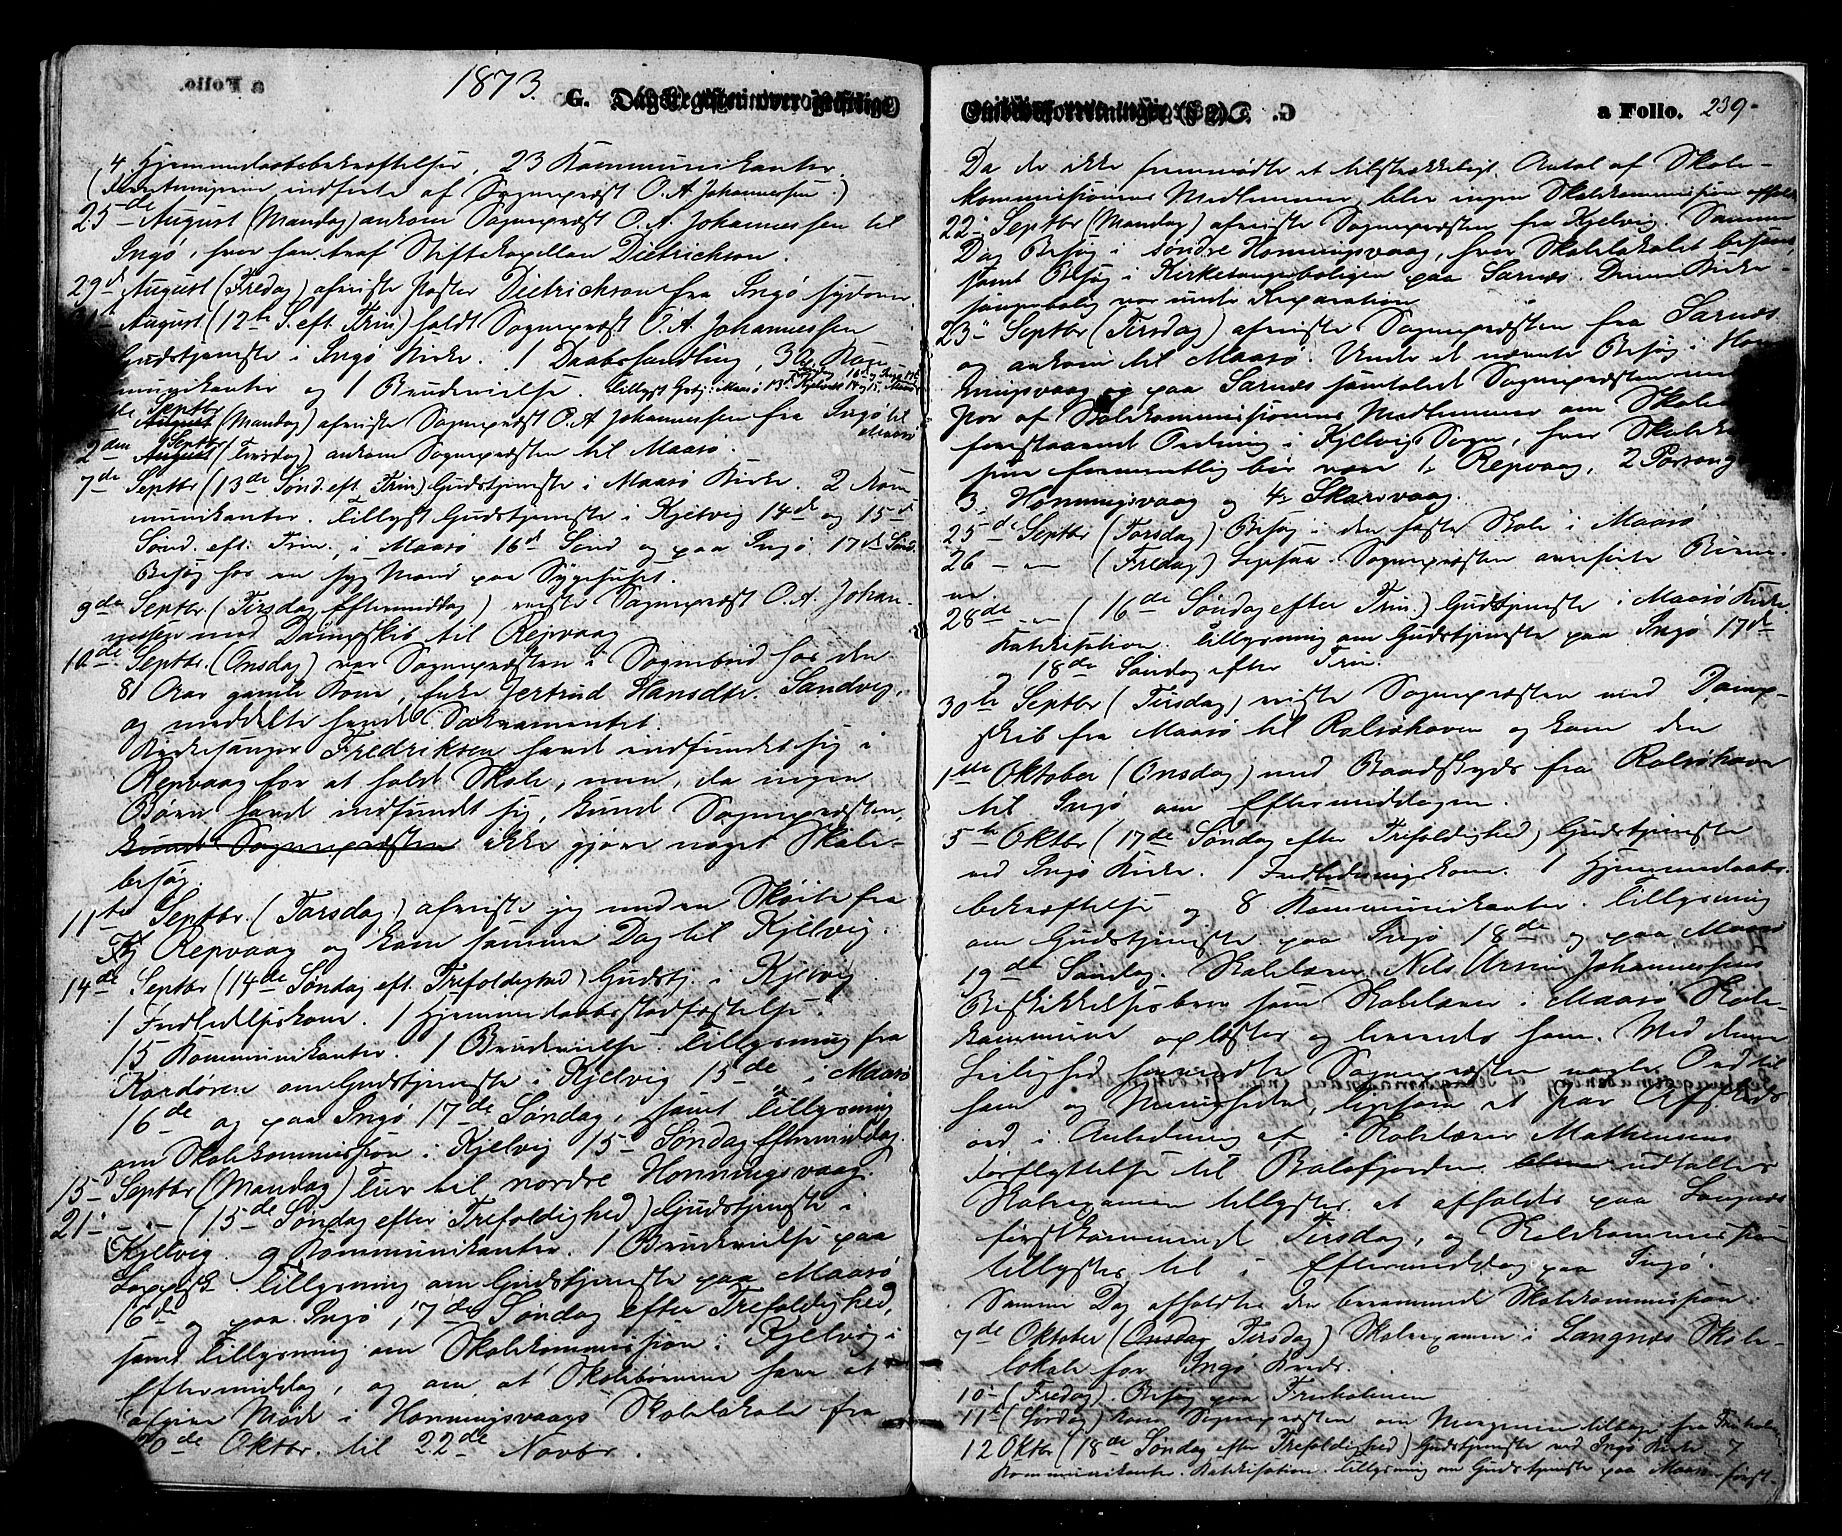 1873.
G. Dagregister over geistlige
4 Hjemmedaabsbekræftelser, 23 Kommunikanter.
(Forretningerne indførte af Sogneprest O. A. Johannessen.)
25de August (Mandag) ankom Sogneprest O. A. Johannessen til
Ingø, hvor han traf Stiftskapellan Dietrichson.
29d August (Fredag) afreiste Pastor Dietrichson fra Ingø sydover.
August (12te S. eft. Trin.) holdt Sogneprest O. A. Johannessen
Gudstjeneste i Ingø Kirke. 1 Daabshandling, 30 Kom-
munikanter og 1 Brudevielse. Tillyst Gstj. i Maasø 13d Kjelvig 14 og 15
Septbr
August (Mandag) afreiste Sogneprest O. A. Johannessen fra Ingø til
Maasø
2den Septbr August (Tirsdag) ankom Sognepresten til Maasø.
7de Septbr (13de Sønd. eft. Trin.) Gudstjeneste i Maasø Kirke. 2 Kom-
munikanter. Tillyst Gudstjeneste i Kjelvig 14de og 15d
Sønd. eft. Trin., i Maasø 16d Sønd og paa Ingø 17d Sønd.
Besøg hos en syg Mand paa Sygehuset.
9de Septbr. (Tirsdag Eftermiddag) reiste Sogneprest O. A. Johan-
nessen med Dampskib til Repvaag
10de Septbr. (Onsdag) var Sognepresten i Sognebud hos den
81 Aar gamle Kone, Enke Jertrud Hansdtr. Sandvig,
og meddelte hende Sakramentet.
Kirkesanger Fredriksen havde indfundet sig i
Repvaag for at holde Skole, men, da ingen
Børn havde indfundt sig, kunde Sognepresten,
kunde Sognepresten ikke gjøre noget Skole-
besøg.
11te Septbr. (Torsdag) afreiste jeg med en Skøite fra
Repvaag og kom samme Dag til Kjelvig.
14de Septbr (14de Søndag eft. Trefoldighed) Gudstj. i Kjelvig
1 Indledelseskone. 1 Hjemmedaabsstadfæstelse.
15 Kommunikanter. 1 Brudevielse. Tillysning fra
Kordøren om Gudstjeneste i Kjelvig 15de, i Maasø
16de og paa Ingø 17de Søndag, samt Tillysning
om Skolekommission i Kjelvig 15d Søndag Eftermiddag.
15d Septbr (Mandag) Tur til nordre Honningsvaag.
21- - (15de Søndag efter Trefoldighed) Gudstjeneste i
Kjelvig. 9 Kommunikanter. 1 Brudevielse paa
Tillysning om Gudstjeneste paa Maasø
16de og paa Ingø 17de Søndag efter Trefoldighed,
samt Tillysning om Skolekommission i Kjelvig i
Eftermiddag, og om, at Skolebørnene have at
afgive Møde i Honningsvaags Skolelokale fra
de Oktbr. til 22de Novbr.
Embedsforretninger G.
a Folio. 239.
Da der ikke fremmødte et tilstrækkeligt Antal af Skole-
kommissionens Medlemmer, blev ingen Skolekommission afholdt
22- Septbr (Mandag) afreiste Sognepresten fra Kjelvig. Samme
Dag Besøg i søndre Honningsvaag, hvor Skolelokalet besaaes,
samt Besøg i Kirkesangerboligen paa Sarnes. Denne Kirke-
sangerbolig var under Reparation.
23- Septbr (Tirsdag) afreiste Sognepresten fra Sarnes
og ankom til Maasø. Under et nævnte Besøg i Hon-
ningsvaag og paa Sarnes samtalede Sognepresten med
Par af Skolekommissionens Medlemmer om Skole
forestaaende Ordning i Kjelvigs Sogn, hvor Skole
formentlig bør være 1. Repvaag, 2 Porsang
3 Honningsvaag og 4. Skarsvaag.
25d Septbr (Torsdag) Besøg i den faste Skole i Maasø
26 - - (Fredag) Ligesaa. Sognepresten overhørte Børne-
ne.
28de - (16de Søndag efter Trin.) Gudstjeneste i Maasø Kirke.
Katekisation. Tillysning om Gudstjeneste paa Ingø 17de
og 18de Søndag efter Trin.
30te Septbr (Tirsdag) reiste Sognepresten med Damp-
skib fra Maasø til Rolfsøhavn og kom den
1ste Oktober (Onsdag) med Baadskyds fra Rolfsøhavn
til Ingø om Eftermiddagen.
5te Oktbr (17de Søndag efter Trefoldighed) Gudstjeneste
ved Ingø Kirke. 1 Indledningskone. 1 Hjemmedaabs-
bekræftelse og 8 Kommunikanter. Tillysning
om Gudstjeneste paa Ingø 18de og paa Maasø
19de Søndag. Skolelærer Nils Johannessens
Beskikkelsesbrev som Skolelærer i Maasø Skole-
kommune oplæstes og leveredes ham. Ved denne
Leilighed henvendte Sognepresten nogle Ord til
ham og Menigheden, ligesom et par Afskeds-
ord i Anledning af Skolelærer Mathisens
Forflyttelse til Balsfjorden blev udtalte.
Skoleexamen tillystes at afholdes paa Langnes
førstkommende Tirsdag, og Skolekommission
tillystes til i Eftermiddag paa Ingø.
Samme Dag afholdtes den berammede Skolekommission.
7de Oktober (Onsdag Tirsdag) Skoleexamen i Langnes Skole-
lokale for Ingø Kreds.
10- (Fredag). Besøg paa Fruholmen
11d (Lørdag) kom Sognepresten om Morgenen tilbage fra Fruholmen
12 Oktbr (18de Søndag efter Trefoldighed) Gudstjeneste ved Ingø Kirke. 7
Kommunikanter. Katekisation. Tillysning om Gudstjeneste paa Maasø først-